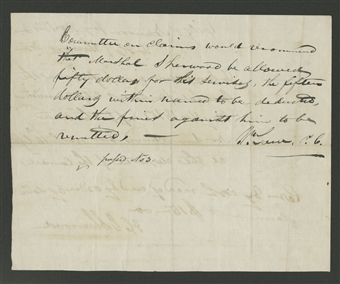 Committee on Claims would recommend
that Marshal Sherwood be allowed
fifty dollars for his services, the fifteen
dollars within named to be deducted,
and the fine against him to be
remitted,
passed Nov 3